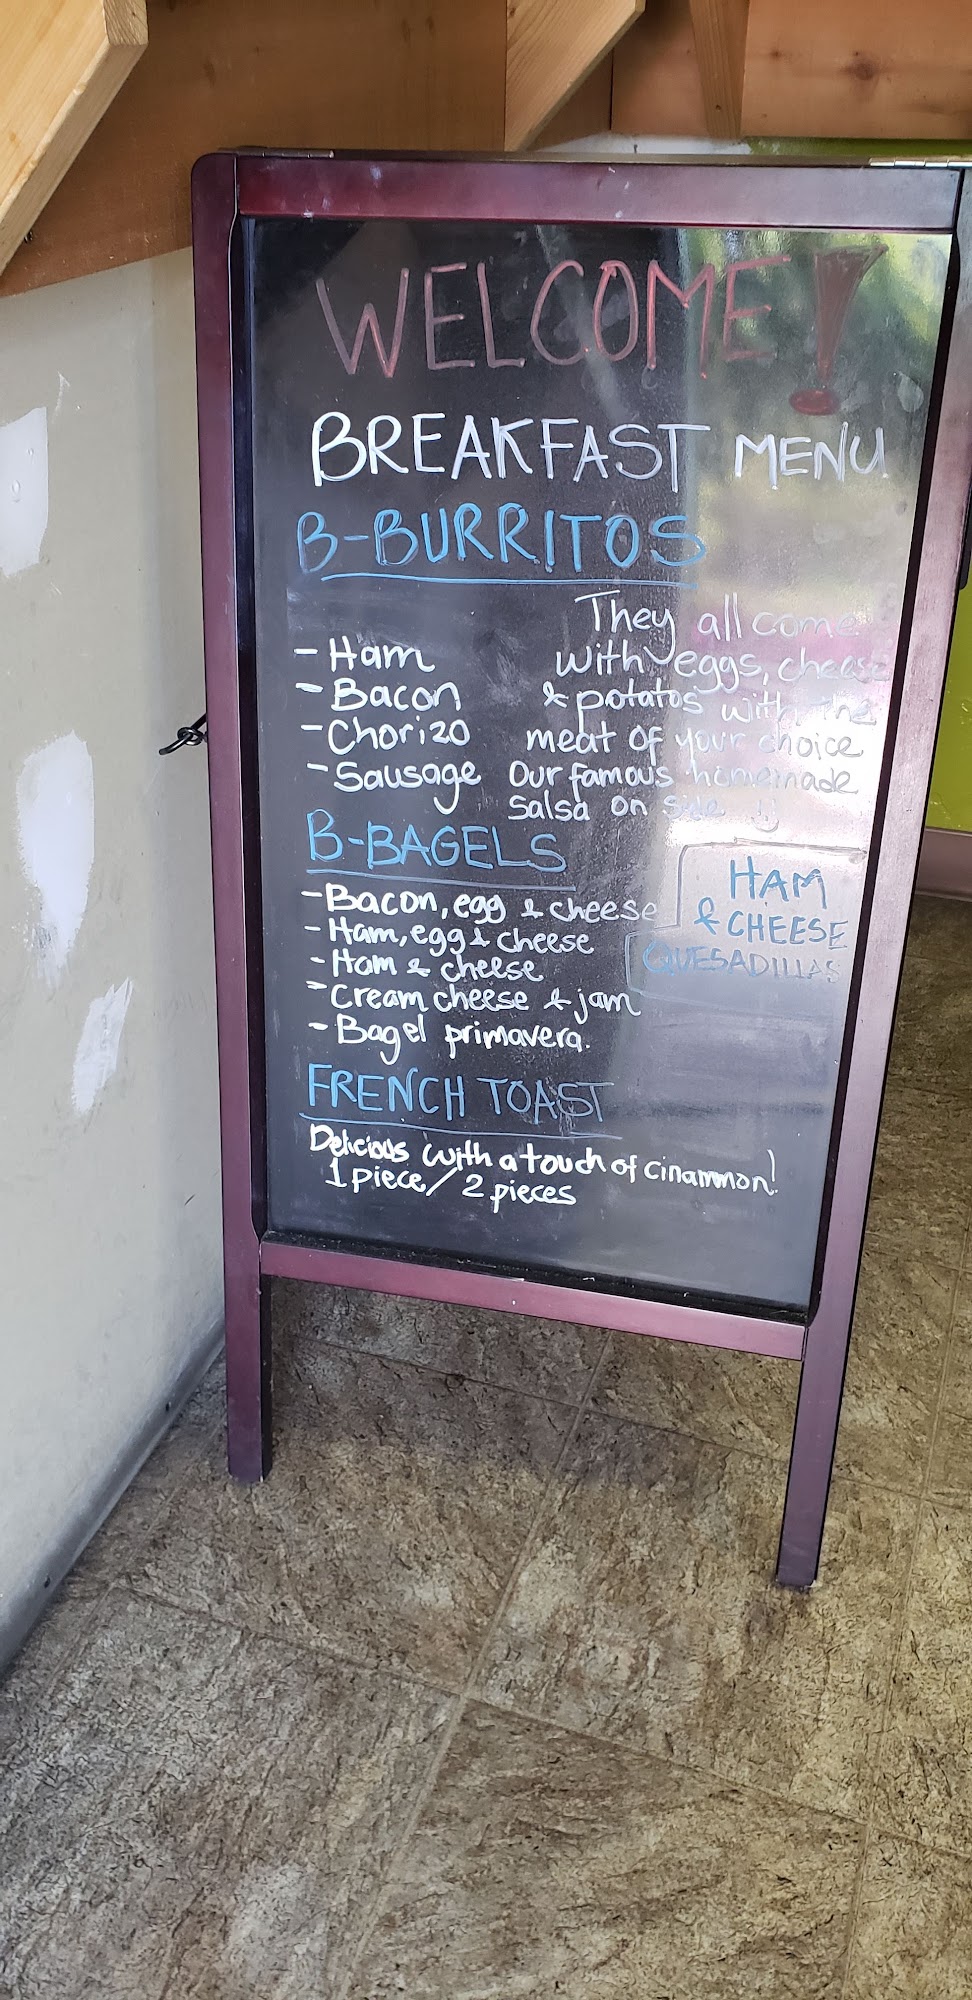 WELCOME!
BREAKFAST MENU
B-BURRITOS
- Ham
- Bacon
- Chorizo
- Sausage
They all come
with eggs, cheese
& potatos with the
meat of your choice
Our famous homemade
salsa on side :)
B-BAGELS
- Bacon, egg & cheese
- Ham, egg & cheese
- Ham & cheese
- Cream cheese & jam
- Bagel primavera.
HAM
& CHEESE
QUESADILLAS
FRENCH TOAST
Delicious with a touch of cinammon!
1 piece / 2 pieces